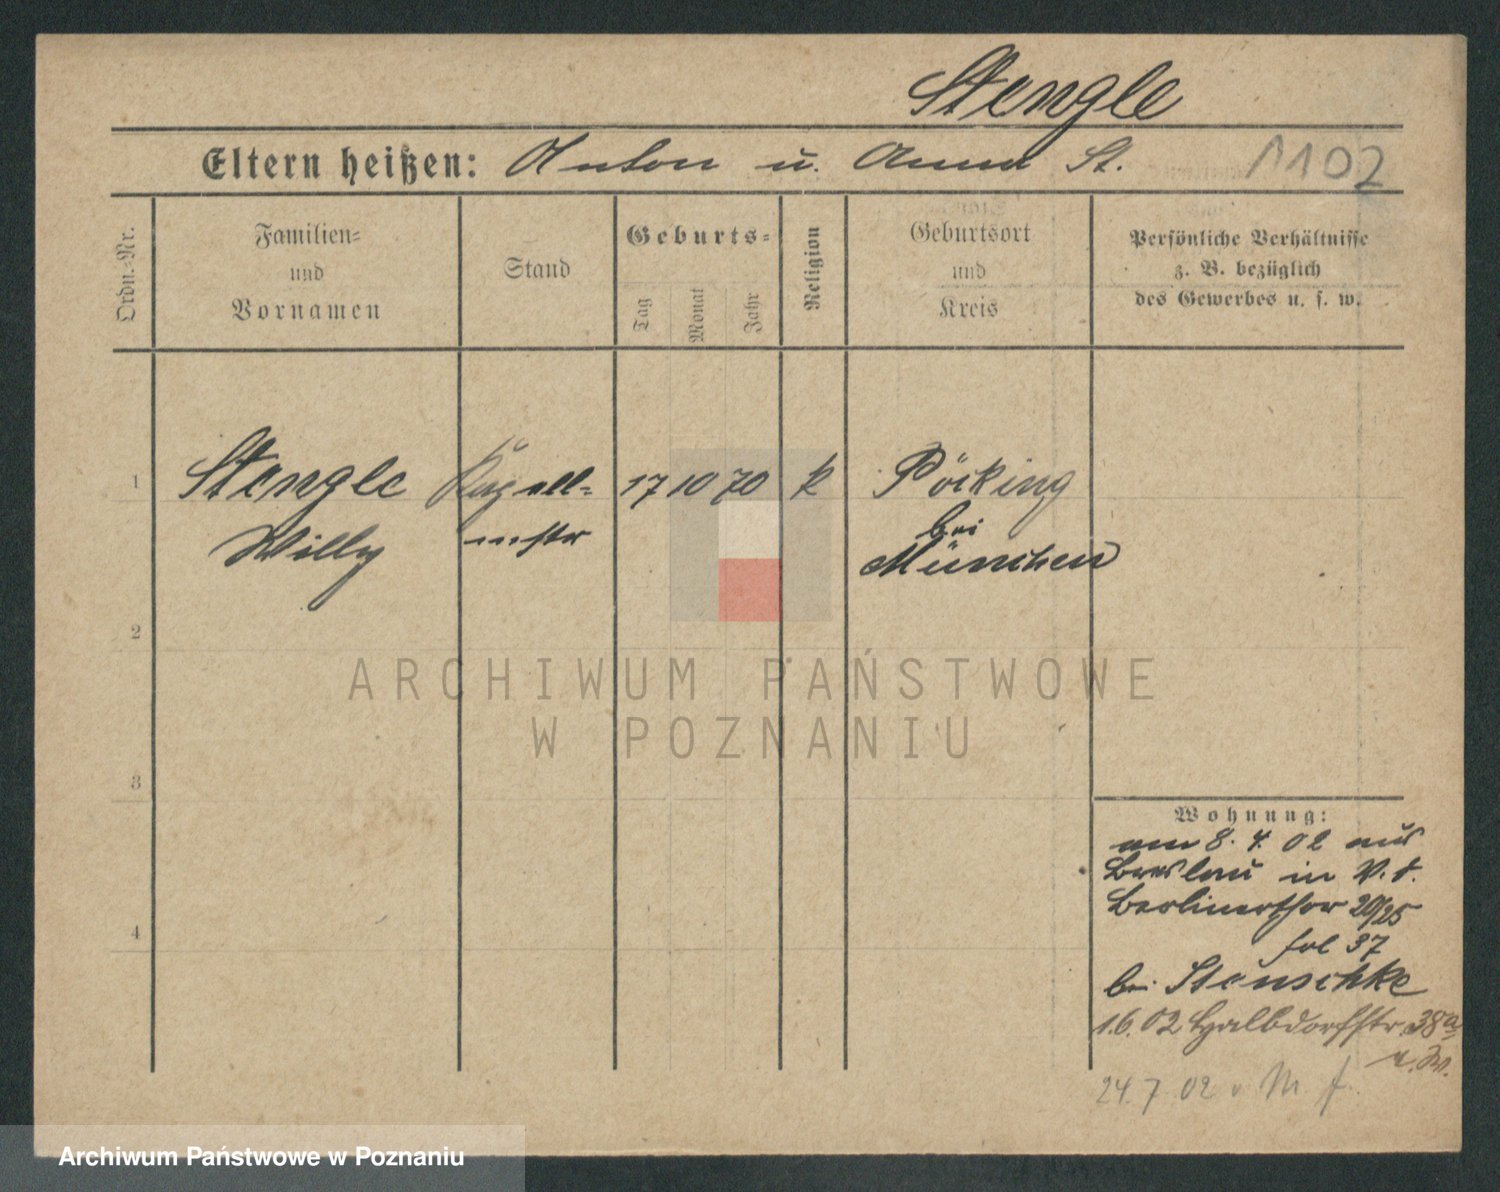 Stengle
Eltern heißen: Anton u. Anna St.
1102
Ordn.-Nr.
Familien-
und
Vornamen
Stand
Geburts-
Tag
Monat
Jahr
Religion
Geburtsort
und
Kreis
Persönliche Verhältnisse
z. B. bezüglich
des Gewerbes u. s. w.
1
Stengle Kapell- 17 10 70 k Pöcking
Willy mstr bei
München
2
3
4
ARCHIWUM PAŃSTWOWE
W POZNANIU
Wohnung:
am 8. 4. 02 aus
Breslau in V. t.
Berlinerthor 20/25
fol 37
bei Stenschke
1.6.02 Halbdorfstr. 38a
24.7.02 v
Archiwum Państwowe w Poznaniu